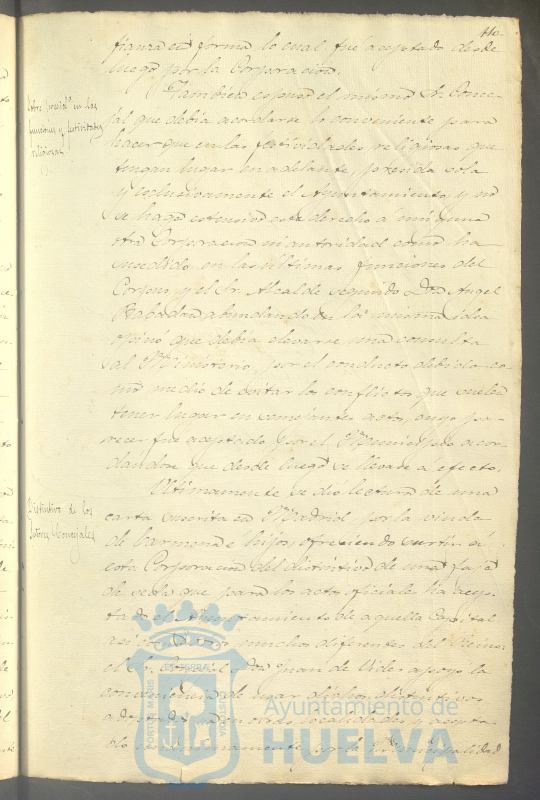 110.
fianza en forma lo cual fué aceptado desde
luego por la Corporacion.
Sobre presid.ª en las
funciones y festividades
religiosas
Tambien espuso el mismo Sr. Conce-
jal que debia acordarse lo conveniente para
hacer que en las festividades religiosas que
tengan lugar en adelante, presida sola
y esclusivamente el Ayuntamiento, y no
se haga estensivo este derecho á ninguna
otra Corporacion ni autoridad como ha
sucedido en las últimas funciones del
Corpus, y el Sr. Alcalde segundo Don Angel
Rabadan abundando en la misma idea
opinó que debia elevarse una consulta
al Ministerio, por el conducto debido co-
mo medio de evitar los conflictos que suelen
tener lugar en semejantes actos, cuyo pa-
recer fué aceptado por el Municipio acor-
dandose que desde luego se llevase a efecto.
Distintivo de los
Sres Concejales
Ultimamente se dió lectura de una
carta suscrita en Madrid por la viuda
de Carmona é hijos, ofreciendo surtir á
esta Corporacion del distintivo de una faja
de seda que para los actos oficiales ha acep-
tado el Ayuntamiento de aquella Capital
asi como otros muchos diferentes del Reino:
el Sr. Concejal Don Juan de Vides apoyo la
conveniencia de usar dichos distintivos
adoptados en otras localidades y acepta-
do por la Municipalidad
PORTUS MARIS
ET TERRAE
CUSTODIA
Ayuntamiento de
HUELVA